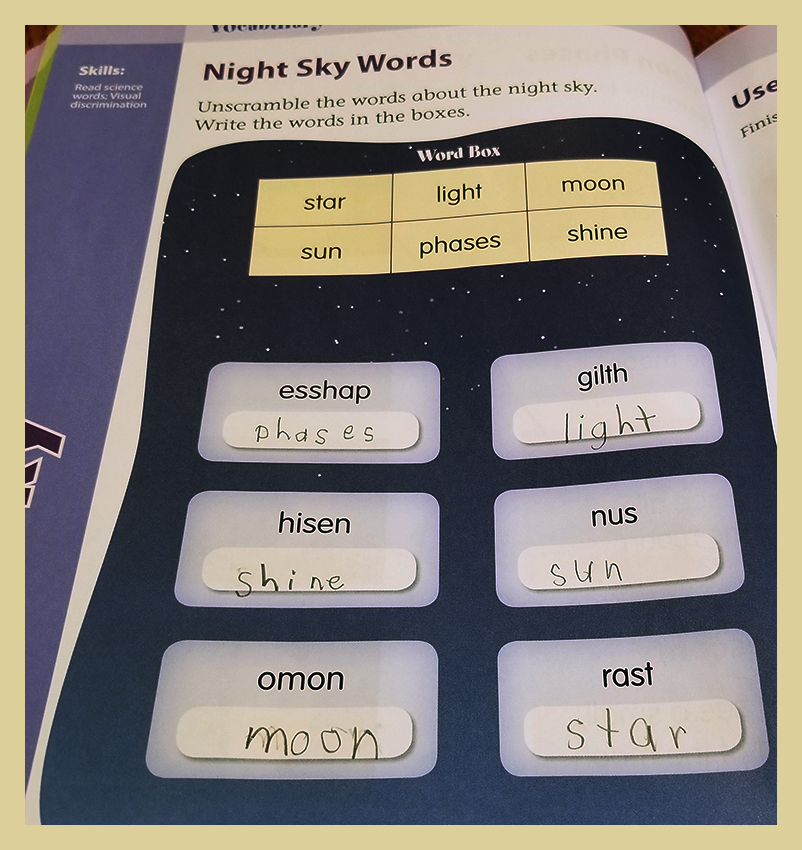 Vocabulary
Skills:
Read science
words; Visual
discrimination
Night Sky Words
Unscramble the words about the night sky.
Write the words in the boxes.
Word Box
star light moon
sun phases shine
esshap gilth
phases light
hisen nus
shine sun
omon rast
moon star
Use
Finis